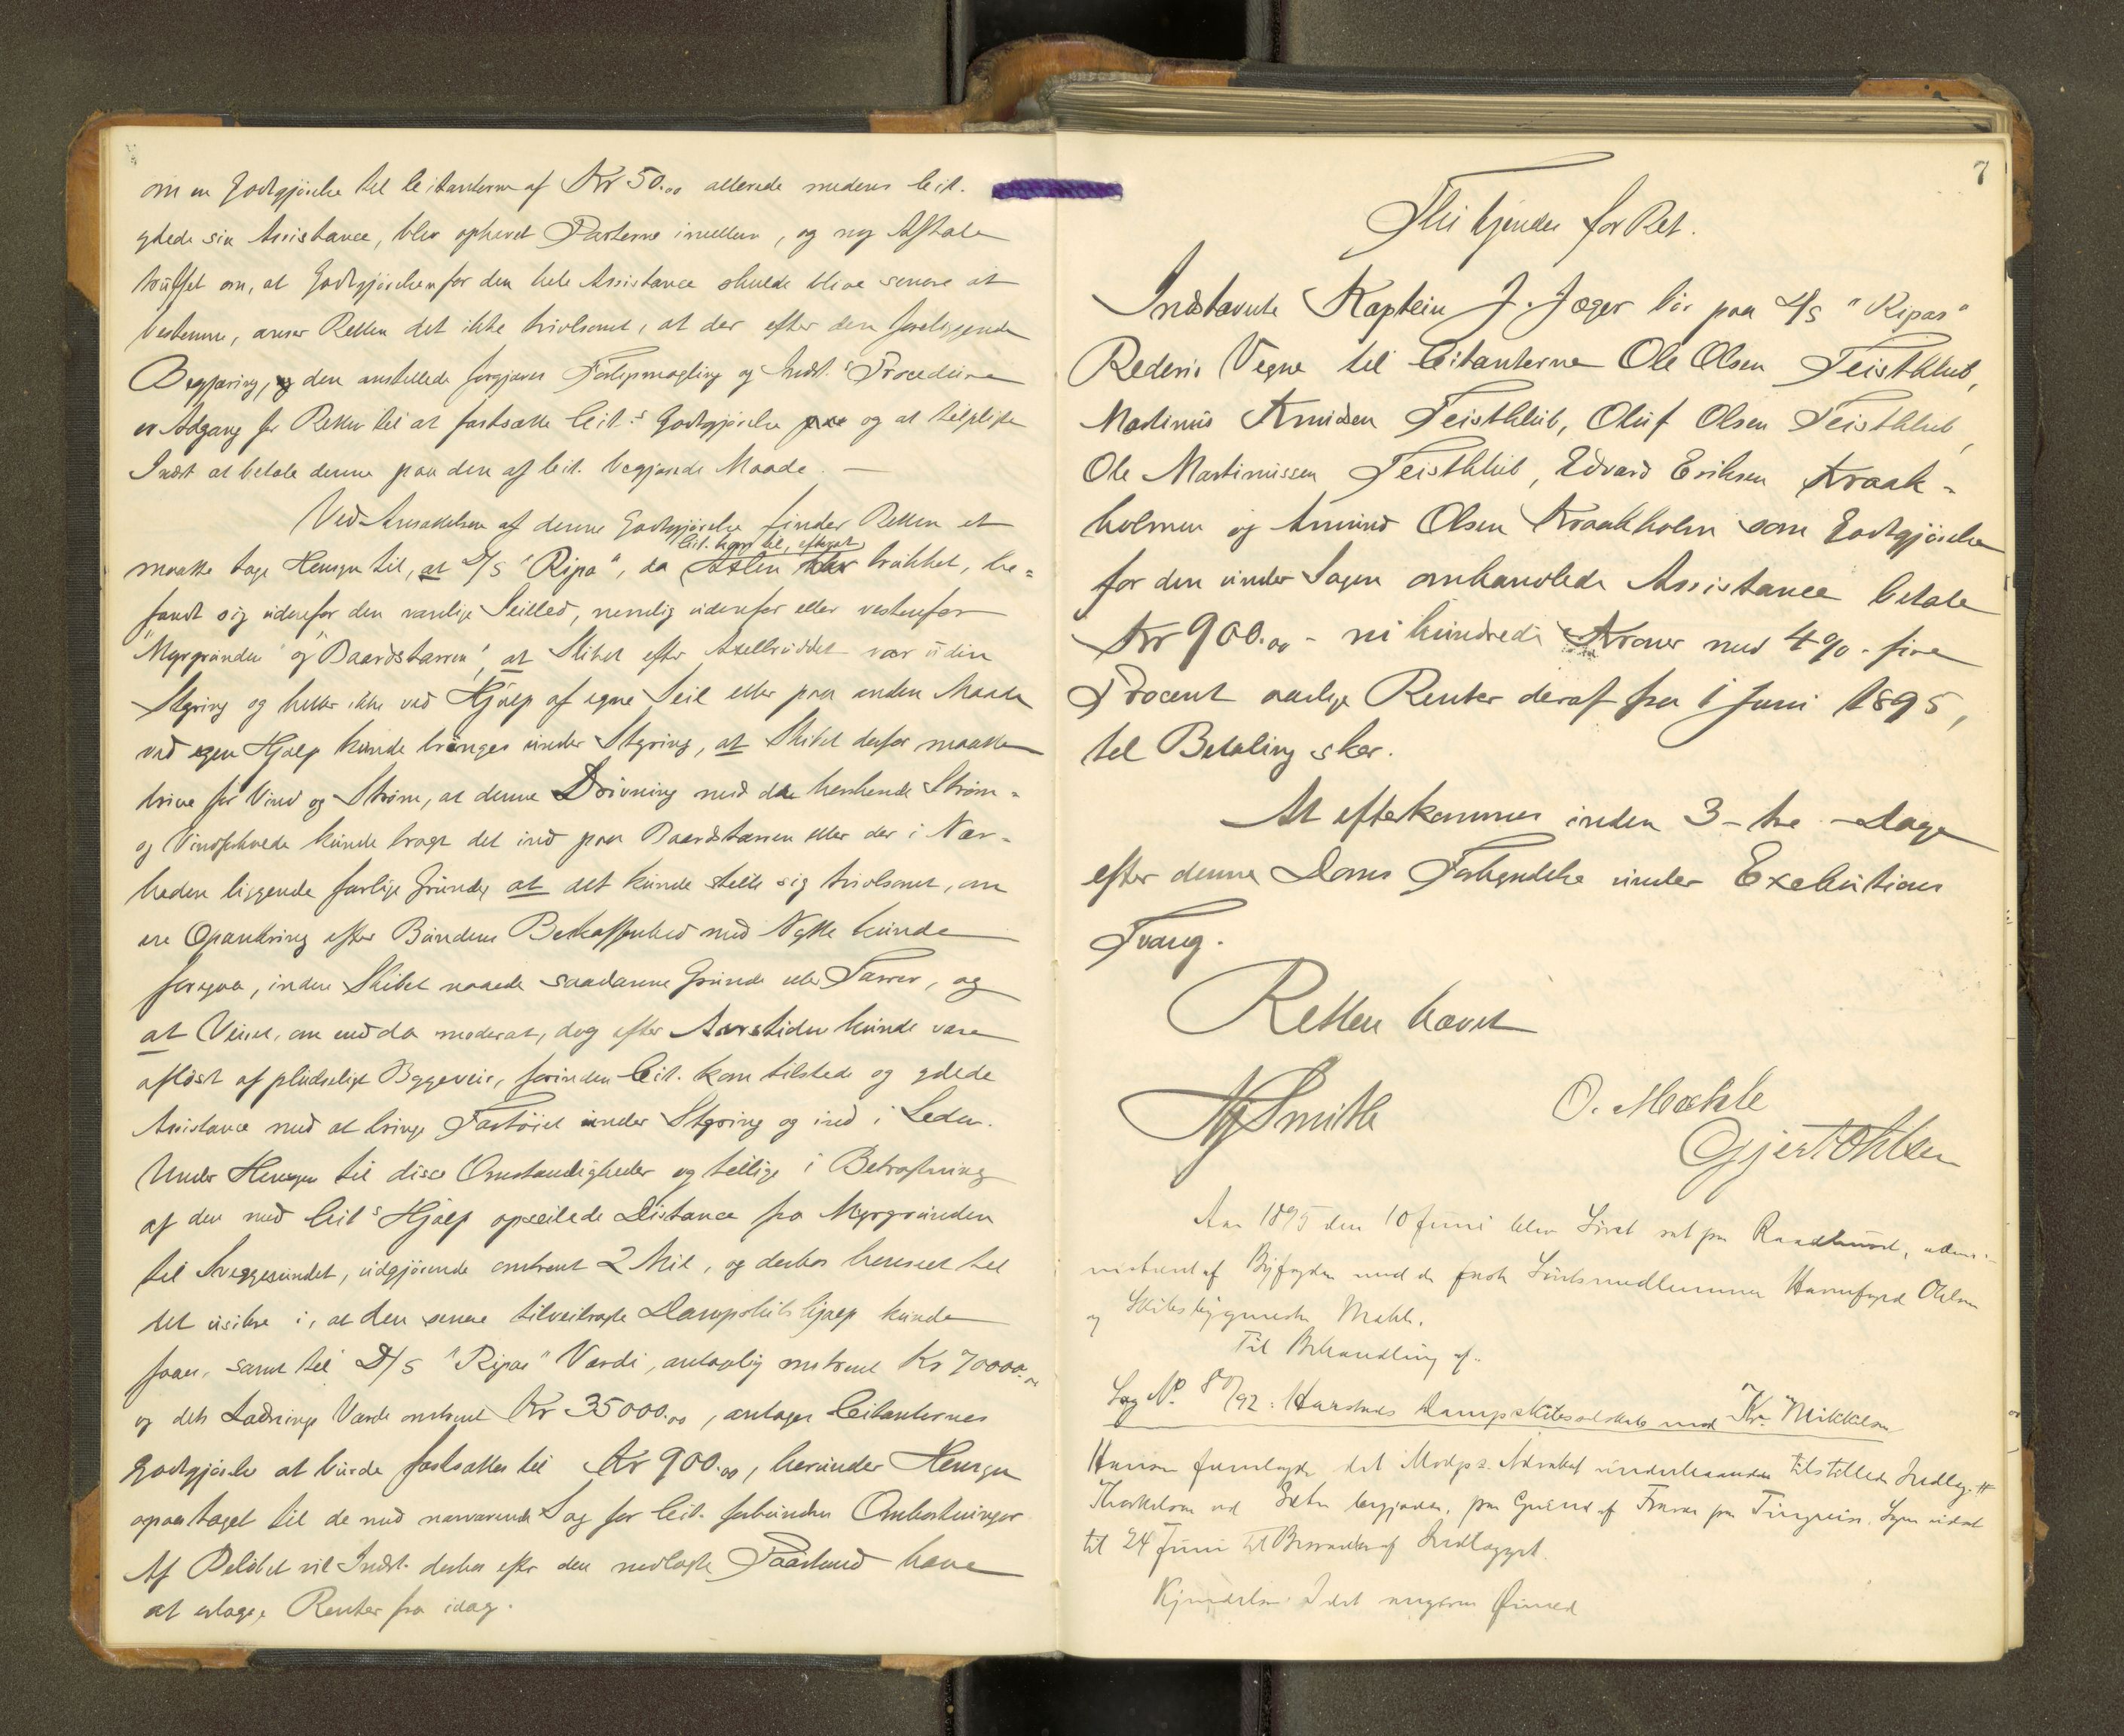 om en Godtgjörelse til Citanterne af Kr 50.00 allerede medens Cit.
ydede sin Assistance, blev ophevet Parterne imellem, og ny Aftale
truffet om, at Godtgjörelsen for den hele Assistance skulde blive senere at
bestemme, anser Retten det ikke tvivlsomt, at der efter den foreliggende
Begjæring, den anstillede forgjæves Forligsmægling og Indst.s Procedure
er Adgang for Retten til at fastsætte Cit.s Godtgjörelse og at tilpligte
Indst at betale denne paa den af Cit. begjærede Maade. —
Ved Ansættelsen af denne Godtgjörelse finder Retten at
Cit. kom til, efterat
maatte tage Hensyn til, at D/S "Ripa", da Axlen var brukket, be-
fandt sig udenfor den vanlige Seilled, nemlig udenfor eller vestenfor
"Myrgrunden" og "Baardstarren", at Skibet efter Axelbruddet var uden
Styring og heller ikke ved Hjælp af egne Seil eller paa anden Maade
ved egen Hjælp kunde bringes under Styring, at Skibet derfor maatte
drive for Vind og Ström, at denne Drivning med de herskende Ström-
og Vindforholde kunde bragt det ind paa Baardstarren eller der i Nær-
heden liggende farlige Grunde, at det kunde stille sig tvivlsomt, om
en Opankring efter Bundens Beskaffenhed med Nytte kunde
foregaa, inden Skibet naaede saadanne Grunde eller Tarrer, og
at Veiret, om end da moderat, dog efter Aarstiden kunde være
aflöst af pludseligt Byggeveir, forinden Cit. kom tilstede og ydede
Assistance med at bringe Fartöiet under Styring og ind i Leden.
Under Hensyn til disse Omstændigheder og tillige i Betragtning
af den med Cit.s Hjælp opseilede Distance fra Myrgrunden
til Sveggesundet, udgjörende omtrent 2 Mil, og derhos henseet til
det usikre i, at den senere tilveibragte Dampskibshjælp kunde
faaes, samt til D/S "Ripas" Værdi, antagelig omtrent Kr 70000.00
og dets Ladnings Værdi omtrent Kr 35000.00, antages Citanternes
Godtgjörelse at burde fastsættes til Kr 900.00, herunder Hensyn
ogsaa taget til de med nærværende Sag for Cit. forbundne Omkostninger.
Af Belöbet vil Indst. derhos efter den nedlagte Paastand have
at erlægge Renter fra idag.
7
Thi kjendes for Ret.
Indstævnte Kaptein J. Jæger bör paa D/S "Ripas"
Rederis Vegne til Citanterne Ole Olsen Teistklub,
Martinus Knudsen Teistklub, Oluf Olsen Teistklub,
Ole Martinussen Teistklub, Edvard Eriksen Kraak-
holmen og Amund Olsen Kraakholm som Godtgjörelse
for den under Sagen omhandlede Assistance betale
Kr 900.00 - ni hundrede Kroner med 4% - fire
Procent aarlige Renter deraf fra 1 Juni 1895,
til Betaling sker.
At efterkommes inden 3 - tre - Dage
efter denne Doms Forkyndelse under Exekutions
Tvang.
Retten hævet
Smith
O. Mæhle
Gjert Ohlsen
Aar 1895 den 10 Juni blev Söret sat paa Raadhuset, admi-
nistreret af Byfogden med de faste Söretsmedlemmer Havnefoged Ohlsen
og Skibsbygmester Mæhle.
Til Behandling af.
Sag No 8/92: Harstads Dampskibsselskab mod Kr. Mikkelsen
Hansen fremlagde det Modps. Advokat underhaanden tilstillede Indlæg.
Thorkelsen ved begjærede, paa Grund af Fravær paa Tingreise, Sagen udsat
til 24 Juni til Besvarelse af Indlægget.
Kjendelse: Idet